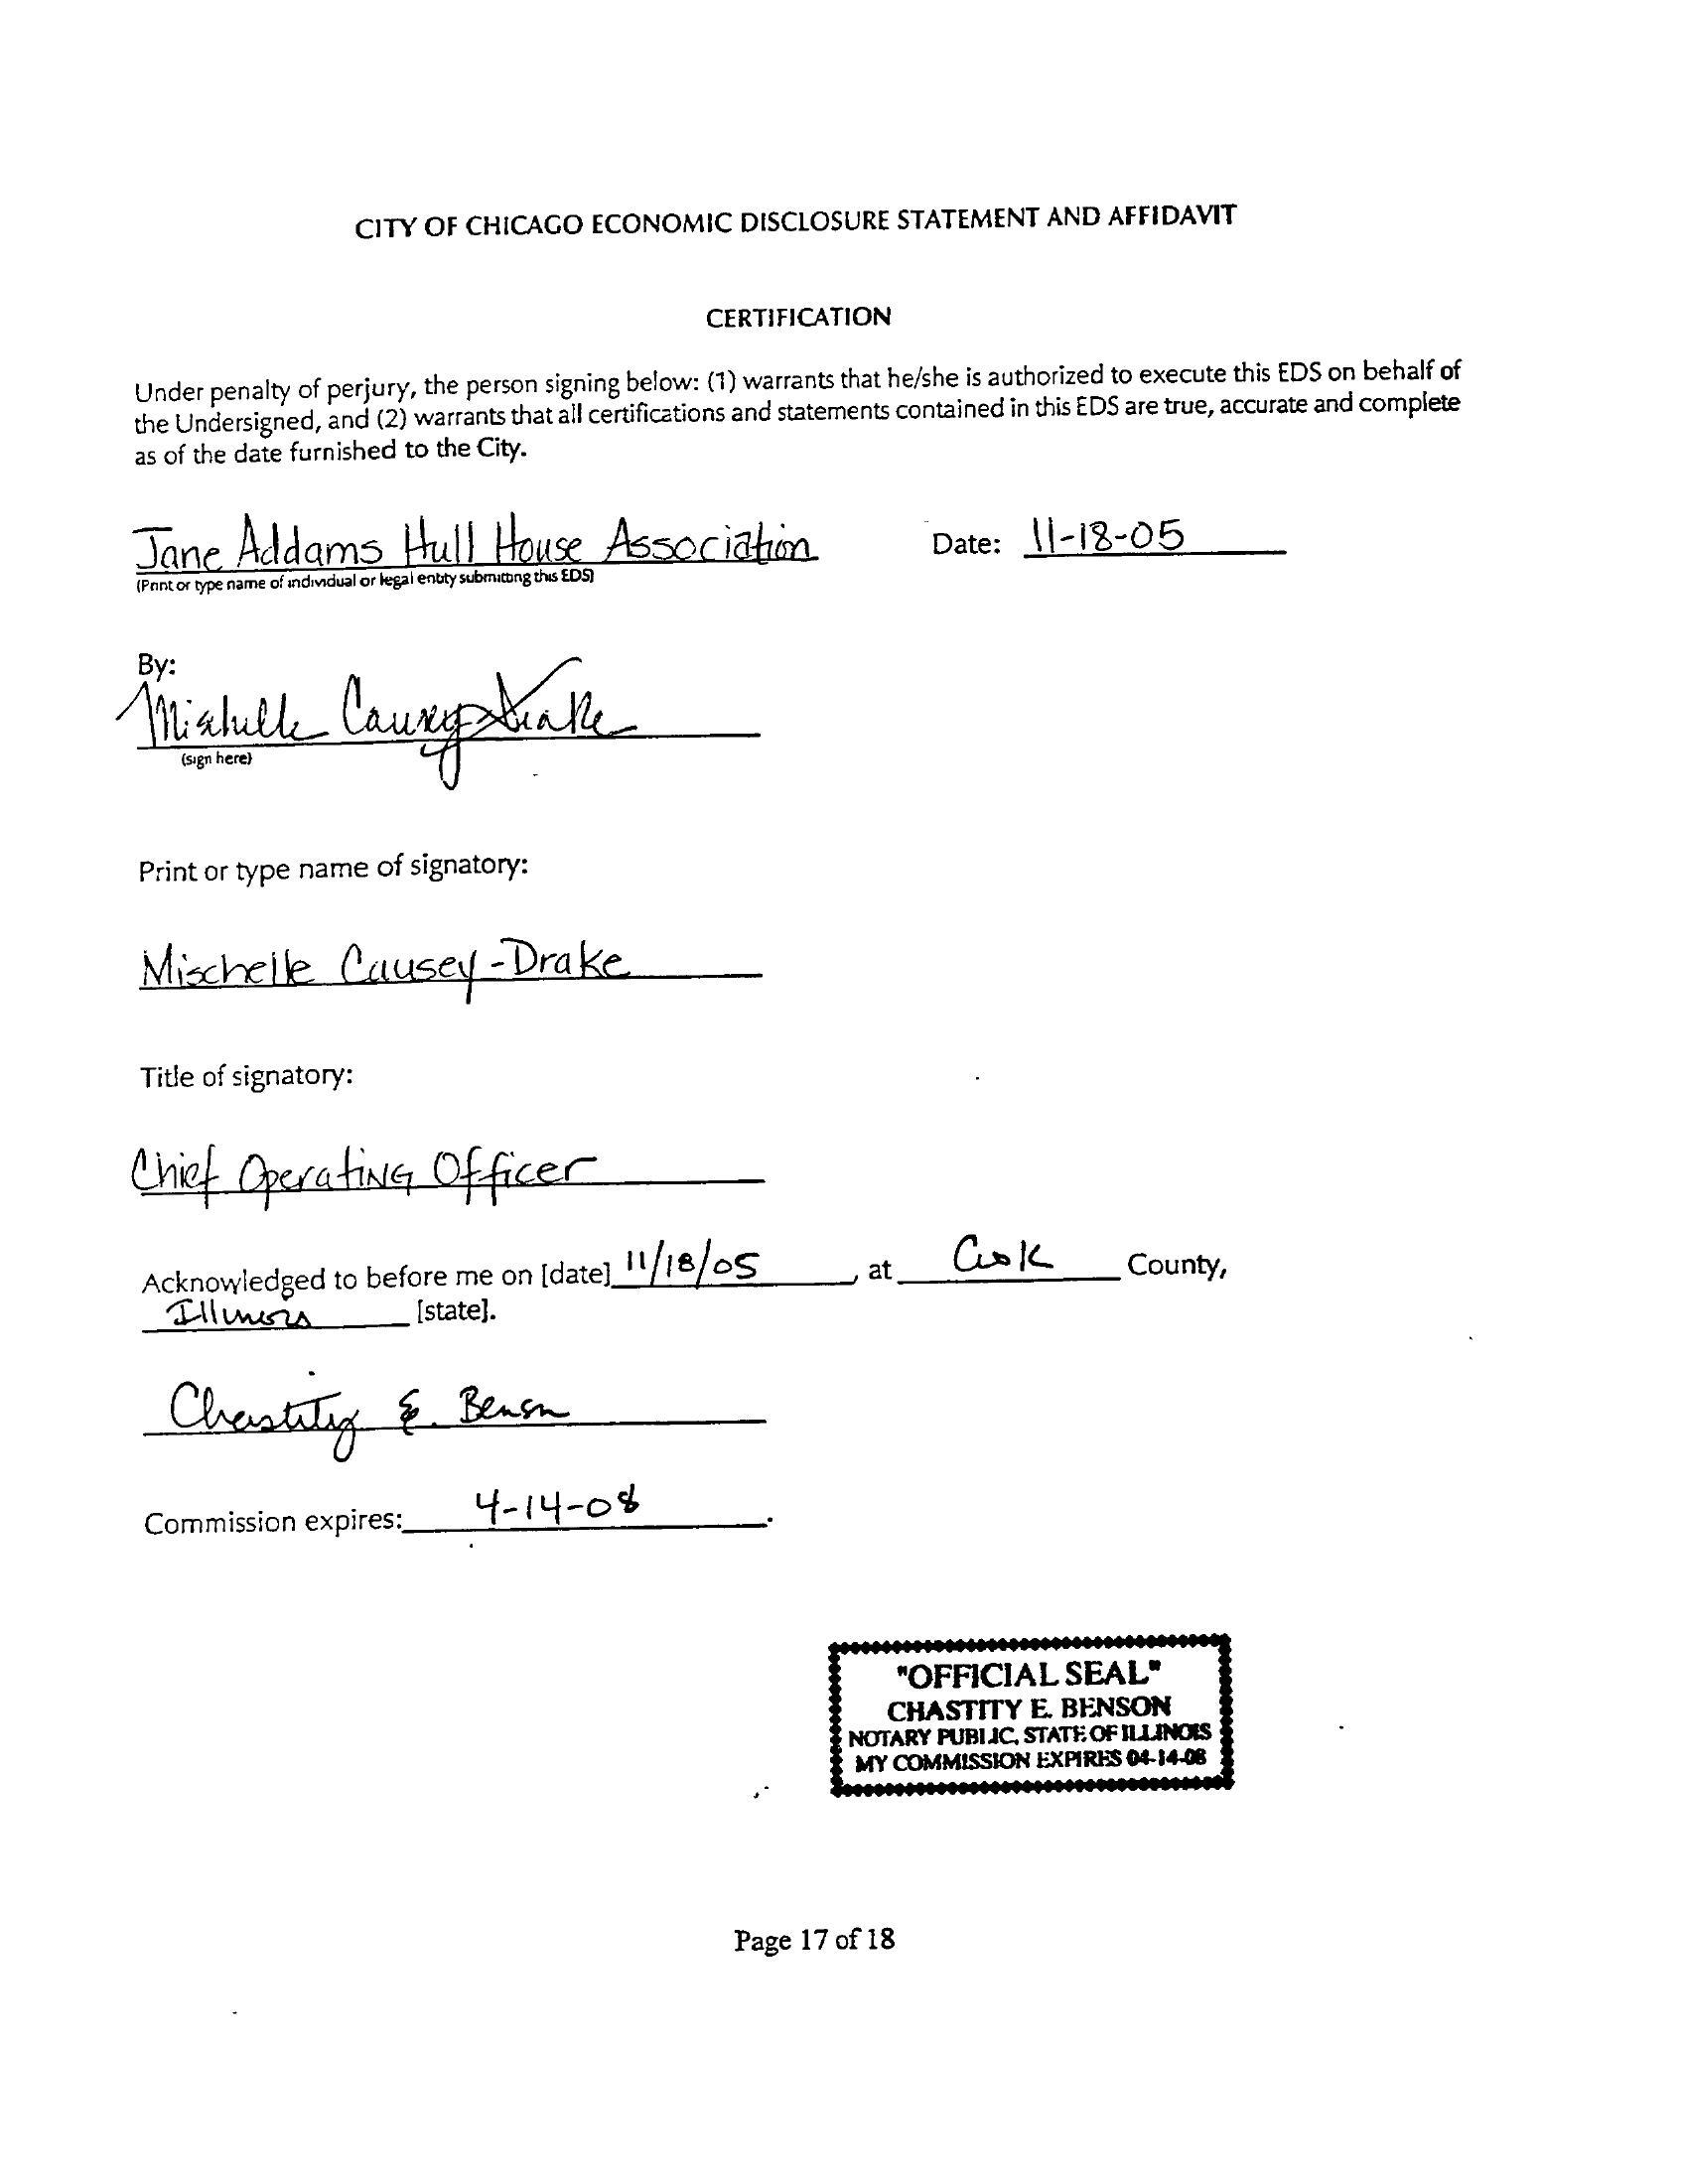 CITY OF CHICAGO ECONOMIC DISCLOSURE STATEMENT AND AFFIDAVIT
CERTIFICATION
Under penalty of perjury, the person signing below: (1) warrants that he/she is authorized to execute this EDS on behalf of
the Undersigned, and (2) warrants that all certifications and statements contained in this EDS are true, accurate and complete
as of the date furnished to the City.
Jane Addams Hull House Association Date: 11-18-05
(Print or type name of individual or legal entity submitting this EDS)
By:
Mischelle Causey-Drake
(sign here)
Print or type name of signatory:
Mischelle Causey-Drake
Title of signatory:
Chief Operating Officer
Acknowledged to before me on [date] 11/18/05, at Cook County,
Illinois [state].
Chastity E. Benson
Commission expires: 4-14-08.
"OFFICIAL SEAL"
CHASTITY E. BENSON
NOTARY PUBLIC, STATE OF ILLINOIS
MY COMMISSION EXPIRES 04-14-08
Page 17 of 18